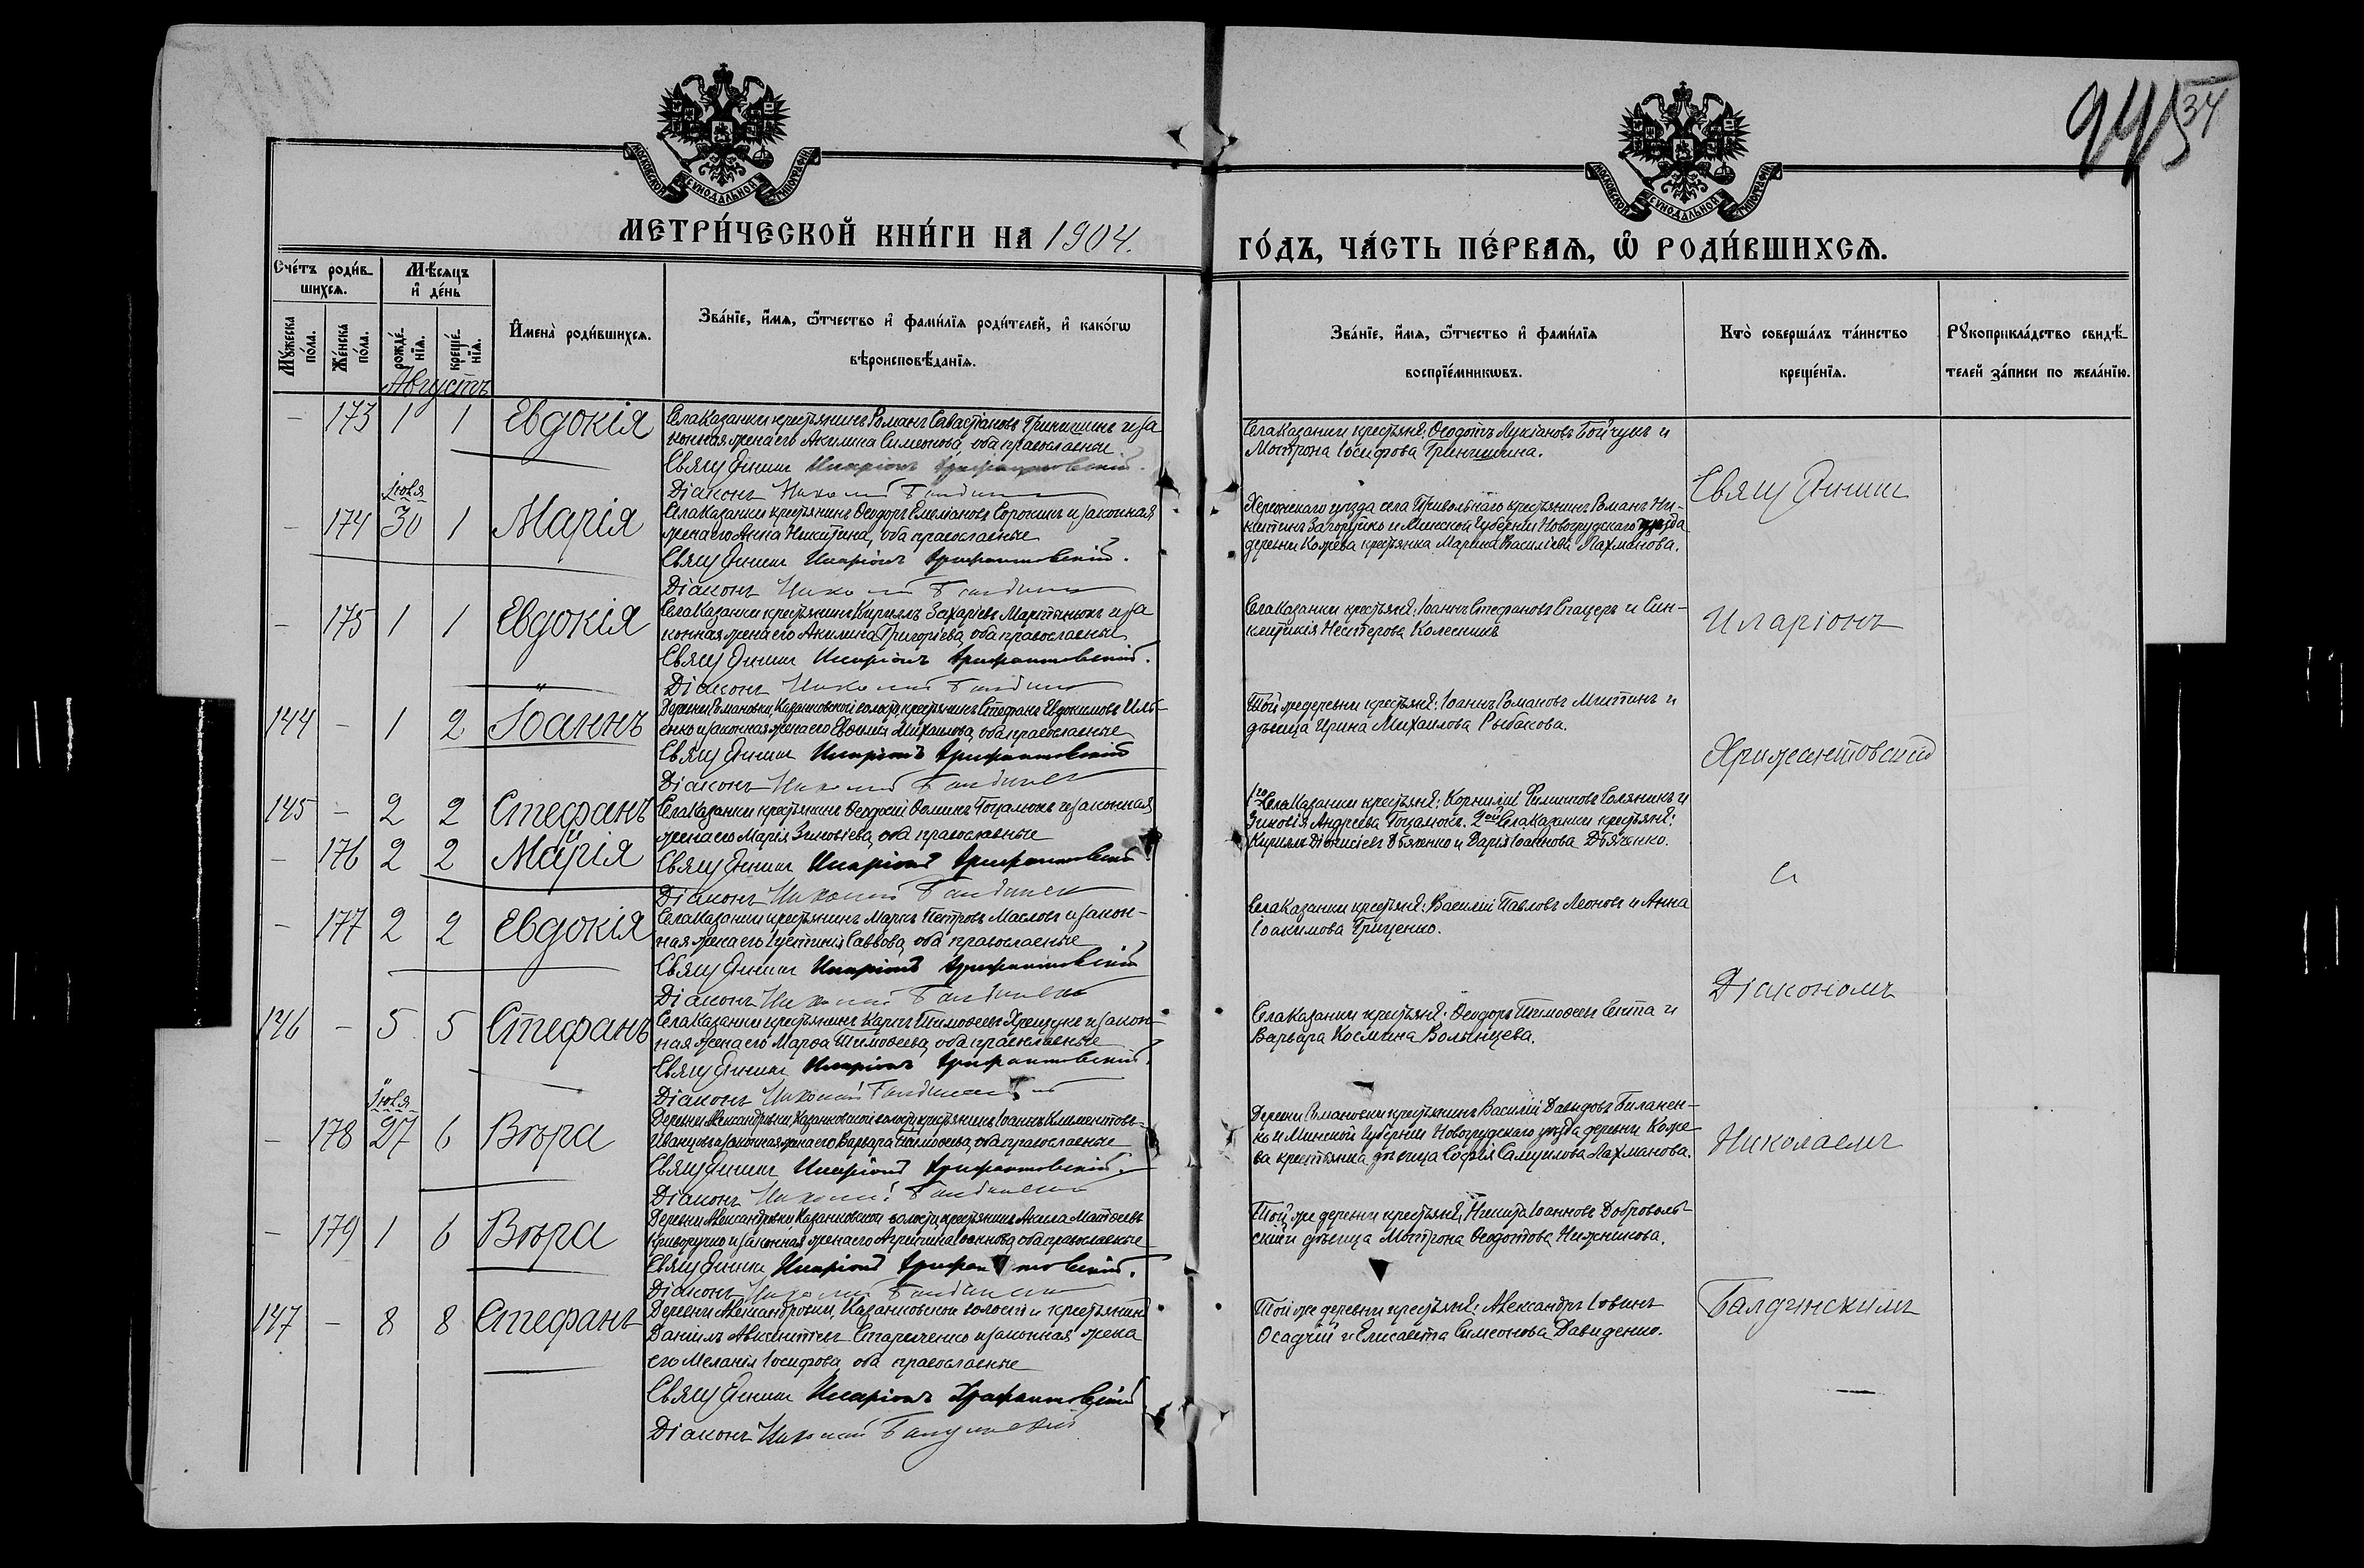 945
34
МОСКОВСКОЙ СѴНОДАЛЬНОЙ ТИПОГРАФІИ
МОСКОВСКОЙ СѴНОДАЛЬНОЙ ТИПОГРАФІИ
МЕТРИ́ЧЕСКОЙ КНИ́ГИ НА 1904.
ГО́ДЪ, ЧА́СТЬ ПЕ́РВАѦ, Ѡ РОДИ́ВШИХСѦ.
Сче́тъ роди́в-
шихсѧ.
Мѣ́сѧцъ
и҆ де́нь
Мꙋ́жеска
по́ла.
Же́нска
по́ла.
рожде́-
нїѧ.
креще́-
нїѧ.
И҆мена̀ роди́вшихсѧ.
Зва́нїе, и҆́мѧ, ѻ҆́тчество и҆ фами́лїѧ роди́телей, и҆ како́гѡ
вѣроисповѣ́данїѧ.
Зва́нїе, и҆́мѧ, ѻ҆́тчество и҆ фами́лїѧ
воспрїе́мникѡвъ.
Кто̀ соверша́лъ та́инство
креще́нїѧ.
Рꙋкоприкла́дство свидѣ́-
телей за́писи по жела́нїю.
Августъ
– 173 1 1 Евдокія
Села Казанки крестьянинъ Романъ Савастіановъ Гринишинъ и за
конная жена его Акилина Симеонова, оба православные
Священникъ Иларіонъ Хрисантовскій.
Діаконъ Николай
Села Казанки крестьяне: Ѳеодотъ Лукіановъ Бойчукъ и
Матрона Іосифова Гринишина.
Іюля
– 174 30 1 Марія
Села Казанки крестьянинъ Ѳеодоръ Емеліановъ Сорокинъ и законная
жена его Анна Никитина, оба православные
Священникъ Иларіонъ Хрисантовскій.
Діаконъ Николай
Херсонскаго уѣзда села Привольнаго крестьянинъ Романъ Ни-
китинъ Загоруйко и Минской Губерніи Новогрудскаго уѣзда
деревни Кожева крестьянка Марина Василіева Лахманова.
– 175 1 1 Евдокія
Села Казанки крестьянинъ Кириллъ Захаріевъ Мартынюкъ и за
конная жена его Акилина Григоріева, оба православные
Священникъ Иларіонъ Хрисантовскій.
Діаконъ Николай
Села Казанки крестьяне: Іоаннъ Стефановъ Стацеръ и Син-
клитикія Нестерова Колесникъ
144 – 1 2 Іоаннъ
Деревни Романовки, Казанковской волости, крестьянинъ Стефанъ Евдокимовъ Иль-
енко и законная жена его Евфимія Михаилова, оба православные
Священникъ Иларіонъ Хрисантовскій
Діаконъ Николай
Той же деревни крестьяне: Іоаннъ Романовъ Митинъ и
дѣвица Ирина Михаилова Рыбакова.
145 – 2 2 Стефанъ
– 176 2 2 Марія
Села Казанки крестьянинъ Ѳеодосій Ѳоминъ Гоцалюкъ и законная
жена его Марія Зиновіева, оба православные
Священникъ Иларіонъ Хрисантовскій
Діаконъ Николай
1го Села Казанки крестьяне: Корнилій Филиповъ Соляникъ и
Зиновія Андреева Гоцалюкъ. 2ой Села Казанки крестьяне:
Кириллъ Діонисіевъ Дьяченко и Дарія Іоаннова Дьяченко.
– 177 2 2 Евдокія
Села Казанки крестьянинъ Маркъ Петровъ Масловъ и закон-
ная жена его Іустинія Саввова, оба православные
Священникъ Иларіонъ Хрисантовскій
Діаконъ Николай
Села Казанки крестьяне: Василій Павловъ Леоновъ и Анна
Іоакимова Гриценко.
146 – 5 5 Стефанъ
Села Казанки крестьянинъ Карпъ Тимоѳеевъ Хрещукъ и закон-
ная жена его Марѳа Тимоѳеева, оба православные
Священникъ Иларіонъ Хрисантовскій.
Діаконъ Николай
Села Казанки крестьяне: Ѳеодоръ Тимоѳеевъ Сента и
Варвара Космина Волынцева.
Іюля
– 178 27 6 Вѣра
Деревни Александровки, Казанковской волости, крестьянинъ Іоаннъ Климентовъ
Иванцовъ и законная жена его Варвара Тимоѳеева, оба православные
Священникъ Иларіонъ Хрисантовскій.
Діаконъ Николай
Деревни Романовки крестьянинъ Василій Давидовъ Биланен-
ко и Минской Губерніи Новогрудскаго уѣзда деревни Коже
ва крестьянка дѣвица Софія Самуилова Лахманова.
– 179 1 6 Вѣра
Деревни Александровки, Казанковской волости, крестьянинъ Акила Матѳеевъ
Криворучко и законная жена его Агрипина Іоаннова, оба православные
Священникъ Иларіонъ Хрисантовскій.
Діаконъ Николай
Той же деревни крестьяне, Никита Іоанновъ Доброволь-
скій и дѣвица Матрона Ѳеодотова Нижникова.
147 – 8 8 Стефанъ
Деревни Александровки, Казанковской волости крестьянинъ
Даніилъ Авксентіевъ Стариченко и законная жена
его Меланія Іосифова оба православные
Священникъ Иларіонъ Хрисантовскій
Діаконъ Николай
Той же деревни крестьяне: Александръ Іовинъ
Осадчій и Елисавета Симеонова Давиденко.
Священникъ
Иларіонъ
Хрисантовскій
съ
Діакономъ
Николаемъ
Балдинскимъ